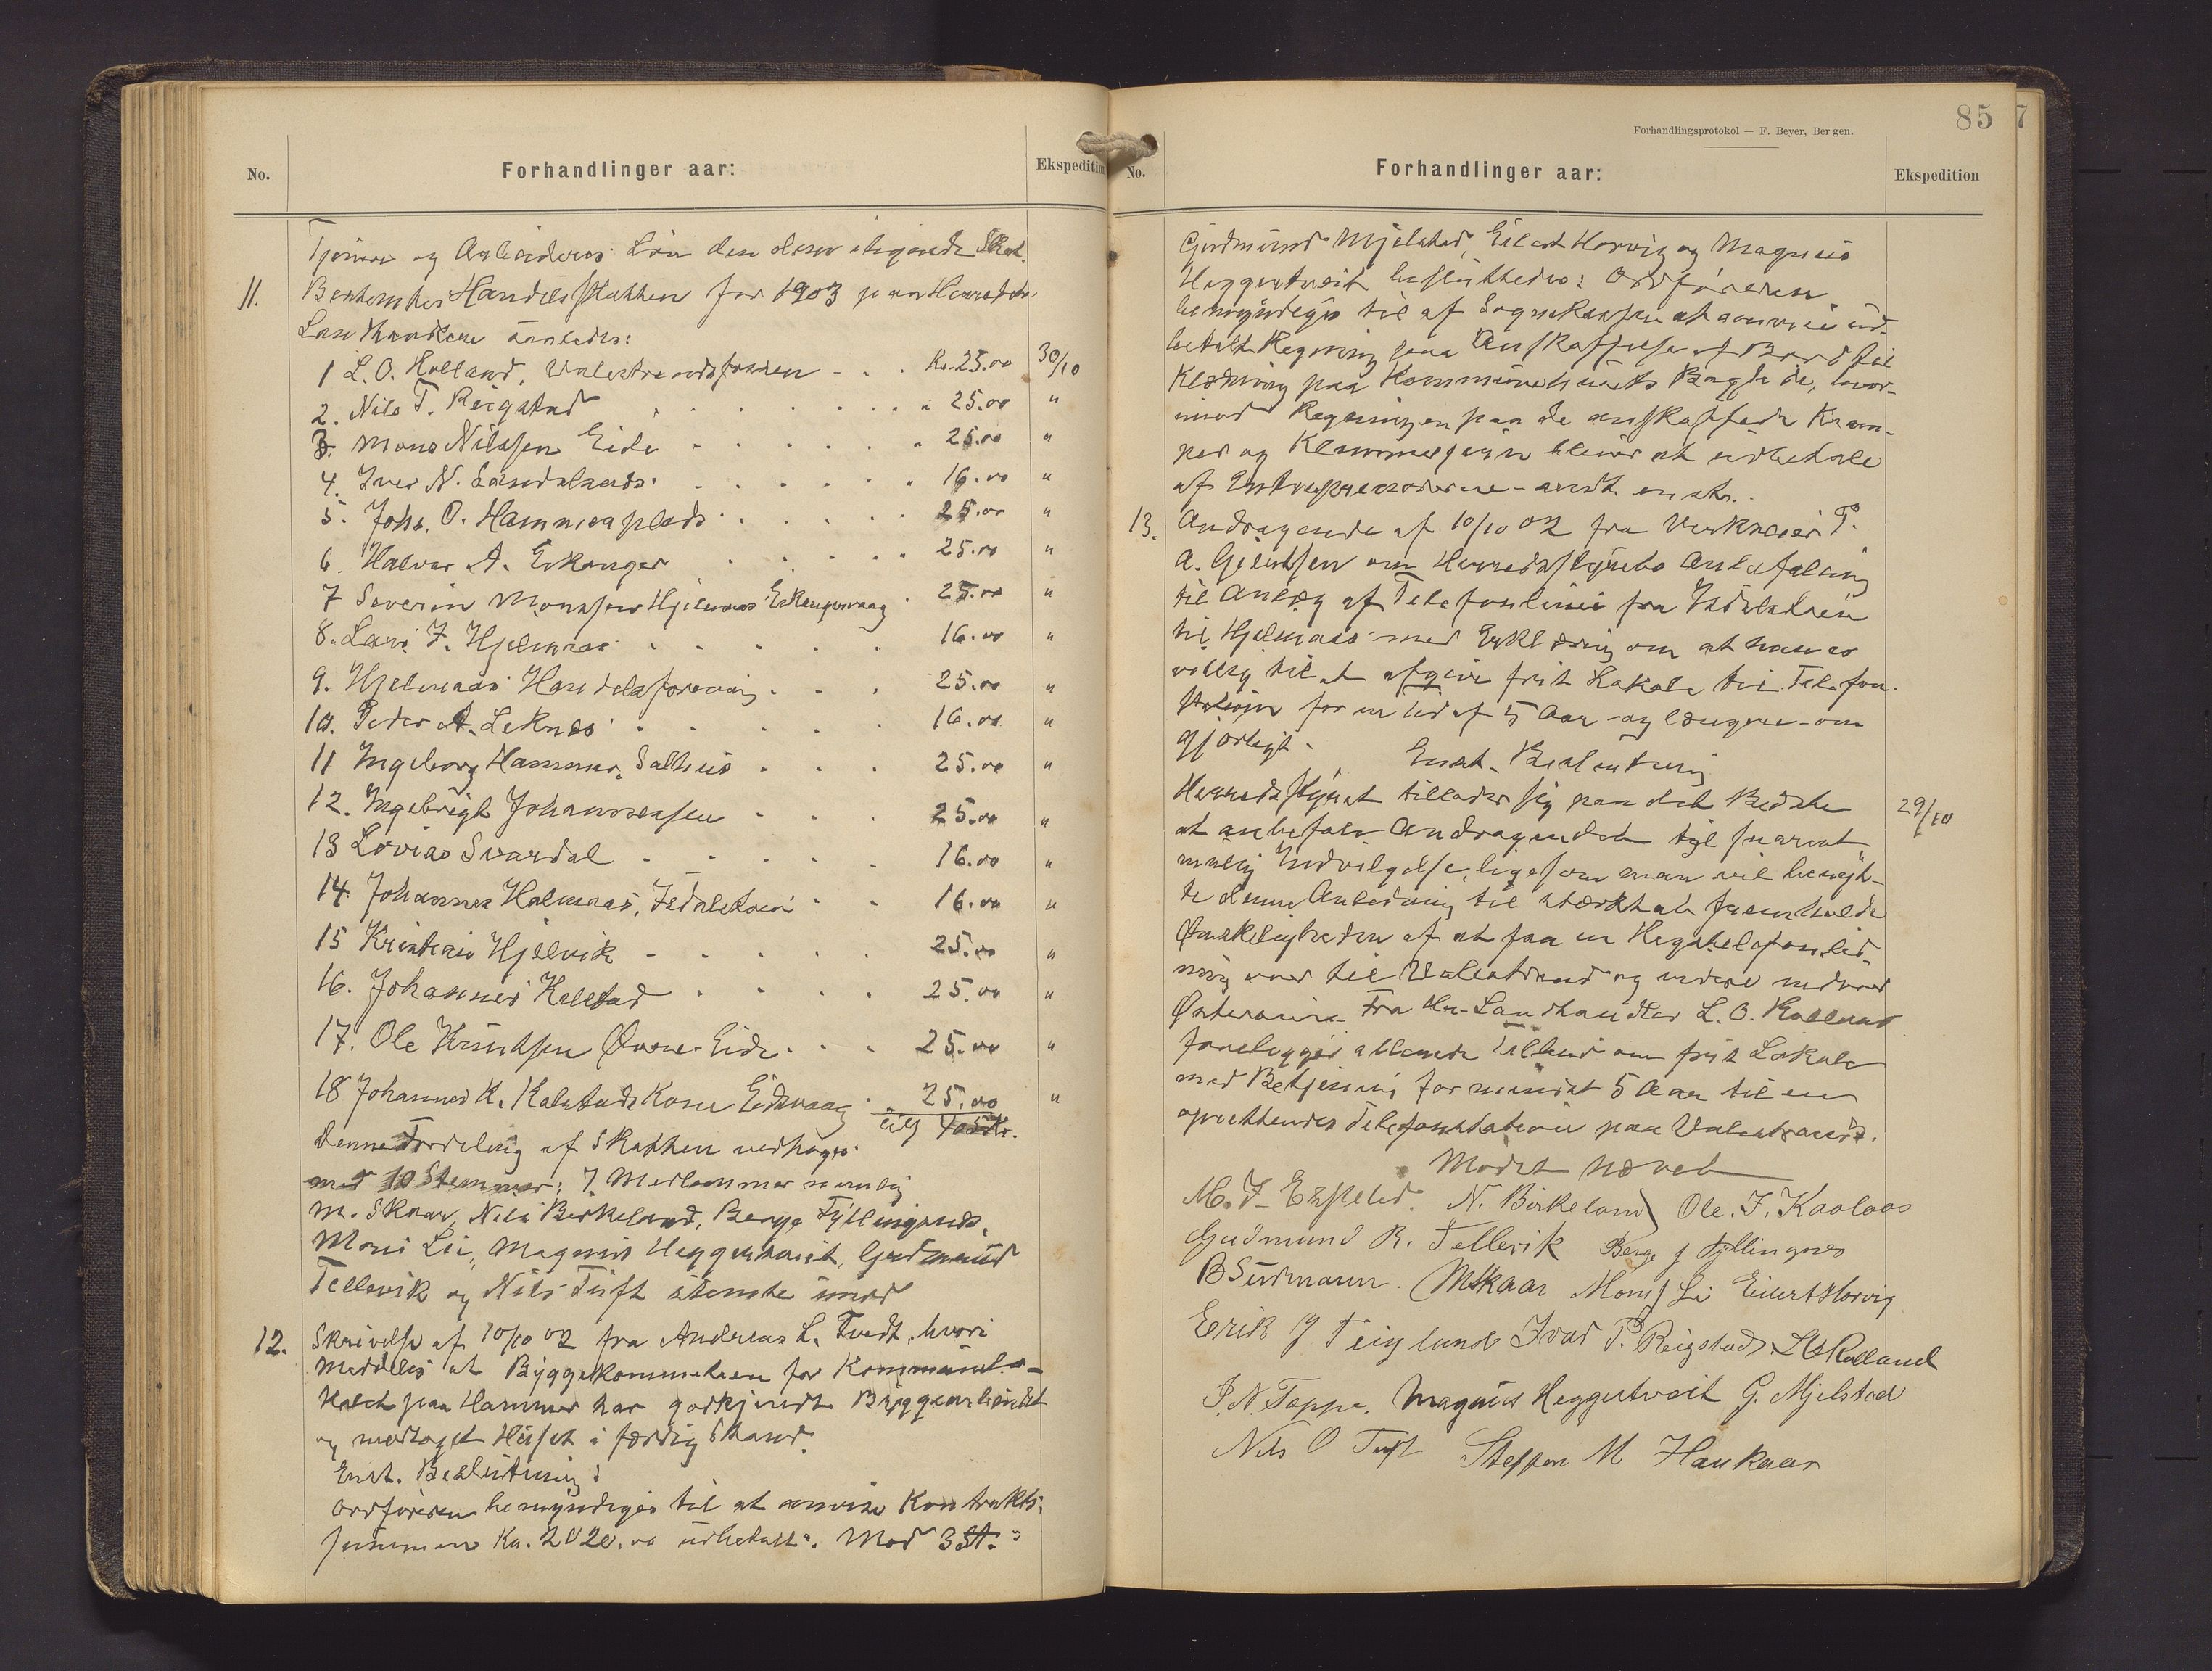 No.
Forhandlinger aar:
Ekspedition
Tjenere og Arbeideres Løn den derav utgaaede Skat.
11. Bestemtes Handelsskatten for 1903 paa Herredets
Landhandlere saaledes:
1 L. O. Holland, Valestrandsfossen - - . Kr. 25.00 30/10
2. Nils T. Reigstad . . . . . . . „ 25.00 "
3. Mons Nilssen Eide . . . . . „ 25.00 "
4. Iver N. . . . . . „ 16.00 "
5. Johs. O. Hammersplads . . . . . 25.00 "
6. Halvor A. Eikanger . . . . „ 25.00 "
7 Severin Monssen Hjelmaas Eikangervaag . 25.00 "
8. Lars J. Hjelmaas . . . . . 16.00 "
9. Hjelmaas Handelsforening . . . 25.00 "
10. Peder A. Leknes . . . . . 16.00 "
11 Ingeborg Hammer, Salhus . . . 25.00 "
12. Ingebrigt Johannessen . . . 25.00 "
13 Lovise Svardal . . . . . 16.00 "
14. Johannes Halmaas, Isdalstøen . . 16.00 "
15 Kristian Hjelvik - . . . . 25.00 "
16. Johannes Kalstad . . . . 25.00 "
17. Ole Knudsen Øvre-Eide . . . 25.00 "
18 Johannes K. Kalstads Kone Eidsvaag . „ 25.00 "
405 Kr.
Denne Fordeling af Skatten vedtoges
med 10 Stemmer; 7 Medlemmer nemlig
M. Skaar, Nils Birkeland, Berge Fyllingsnes,
Mons Li, Magnus Heggertveit, Gudmund
Tellevik og Nils Tuft stemte imod
12. Skrivelse af 10/10 02 fra Andreas L. Tvedt, hvori
meddeles at Byggekommiteen for Kommunelo-
kalet paa Hammer har godkjendt Byggearbeidet
og modtaget Huset i færdig Stand.
Enst. Beslutning:
Ordføreren bemyndiges til at anvise Kontrakts-
summen Kr. 2020.00 udbetalt. Mod 3 St.

Forhandlingsprotokol — F. Beyer, Bergen.
85
7
No.
Forhandlinger aar:
Ekspedition
Gudmund Mjelstad, Eilert Horvig og Magnus
Heggertveit besluttedes: Ordføreren
bemyndiges til af Sognekassen at anvise ud-
betalt Regning paa Anskaffelse af Bord til
Klædning paa Kommunehusets Bagside, hvor-
imod Regningen paa de anskaffede Kram-
per og bliver at udbetale
af Entreprenørerne - andt. enst.
13. Andragende af 10/10 02 fra Verkseier P.
A. Gjertsen om Herredsstyrets Anbefaling
til Anlæg af Telefonlinie fra Isdalstøen
til Hjelmaas med Erklæring om at han er
villig til at afgive frit Lokale til Telefon-
station for en tid af 5 Aar - og længere - om
gjørligt. Enst. Beslutning
Herredsstyret tillader sig paa det Bedste 29/10
at anbefale Andragendet til snarest
mulig Indvilgelse, ligesom man vil benyt-
te denne Anledning til sterkt at fremholde
Ønskeligheden af at faa en Rigstelefonled-
ning over til Valestrand og videre indover
Osterøen. Fra Hr. Landhandler L. O. Rolland
foreligger allerede Tilbud om frit Lokale
med Betjening for mindst 5 Aar til en
oprettendes Telefonstation paa Valestrand.
Mødet hævet
M. J. Erstad. N. Birkeland Ole. J. Kaalaas
Gudmund R. Tellevik Berge J Fyllingsnes
B Sudmann. MSkaar Mons J Li Eilert Horvig
Erik J Teigland Ivar P. Reigstad L O Rolland
P. N. Toppe. Magnus Heggertveit G. Mjelstad
Nils O Tuft Steffen M Haukaas